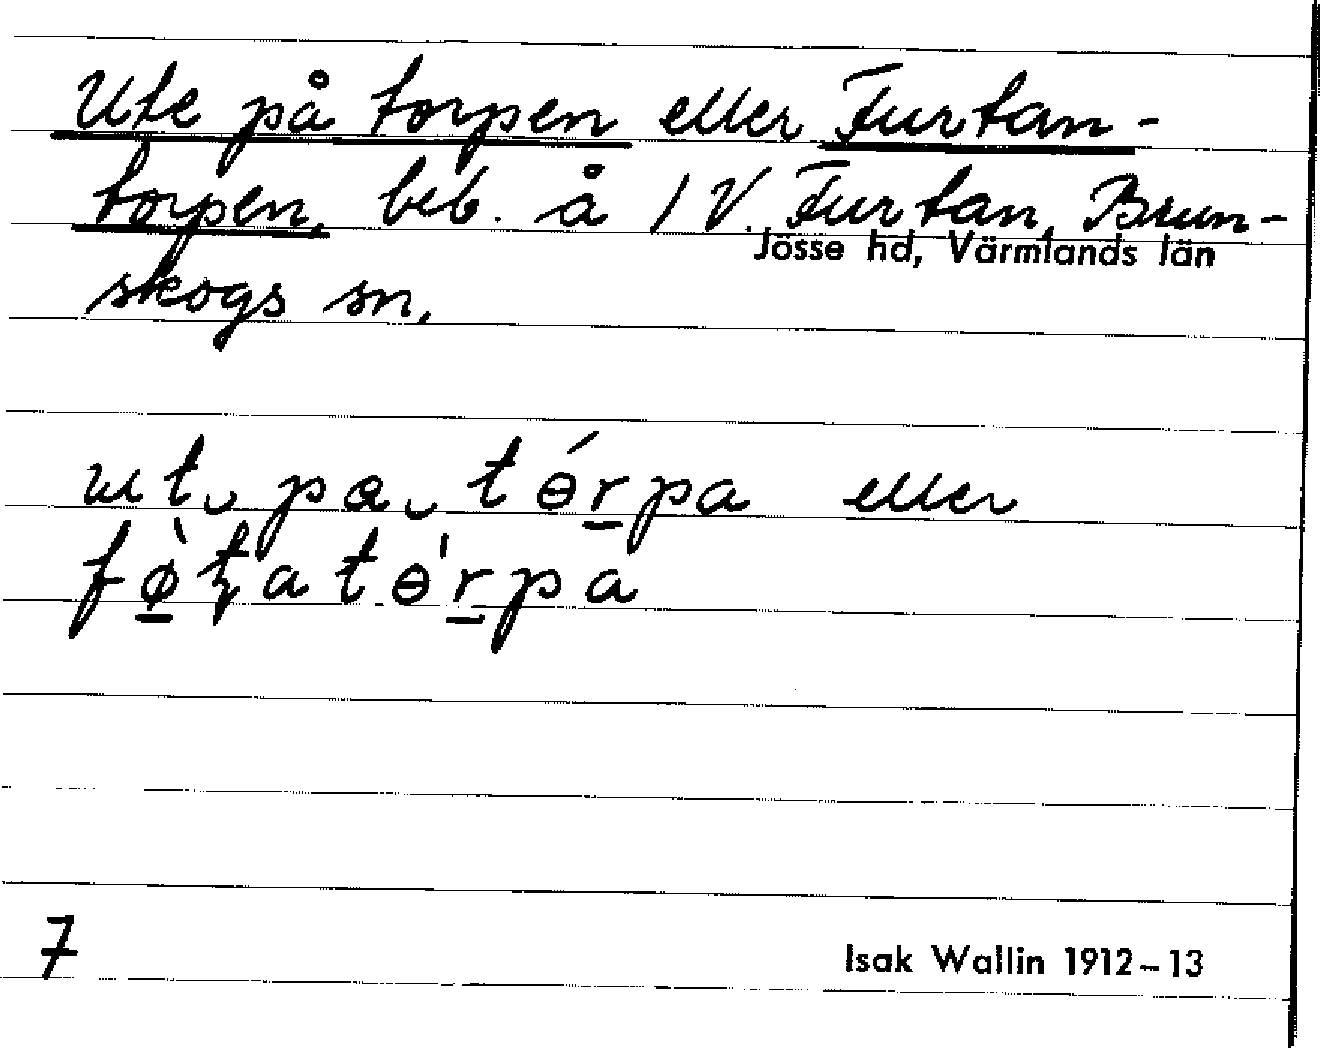 Ute på torpen eller Furtan-
torpen, beb. å 1 V. Furtan, Brun-
Jösse hd, Värmlands län
skogs sn.
ut‿ pa‿ tɵ́r̲pa eller
fø̲̀ʈatɵ'r̲pa
7
Isak Wallin 1912-13